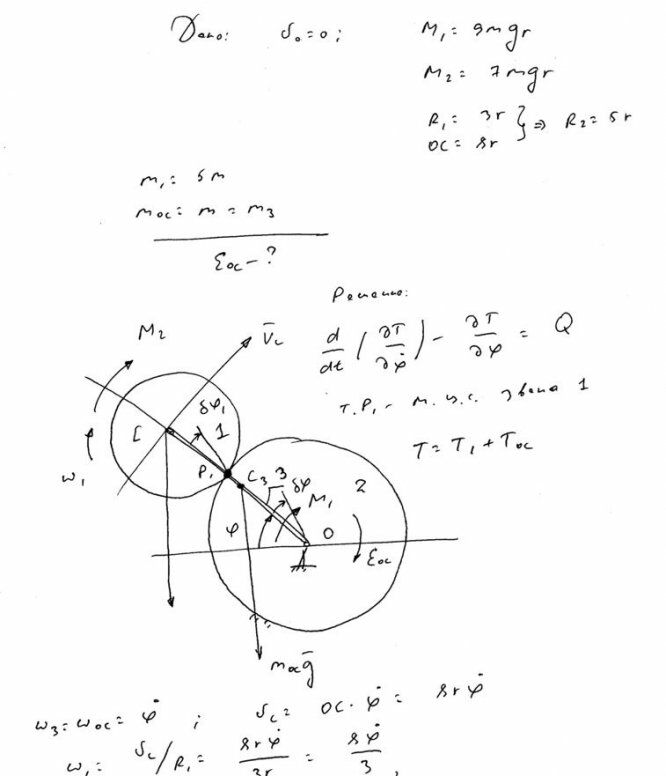 Дано: υ₀ = 0; M₁ = 9mgr
M₂ = 7mgr
R₁ = 3r
OC = 8r } ⇒ R₂ = 5r
m₁ = 5m
mOC = m = m₃
εOC - ?
Решение:
d/dt (∂T/∂φ̇) - ∂T/∂φ = Q
т. P₁ - м.ц.с. звена 1
T = T₁ + TOC
M₂
V̄c
δφ₁
C
1
ω₁
P₁
C₃
3
δφ
M₁
2
φ
O
εOC
mOC ḡ
ω₃ = ωOC = φ̇ ; υc = OC · φ̇ = 8rφ̇
ω₁ = υc/R₁ = 8rφ̇/3r = 8φ̇/3,